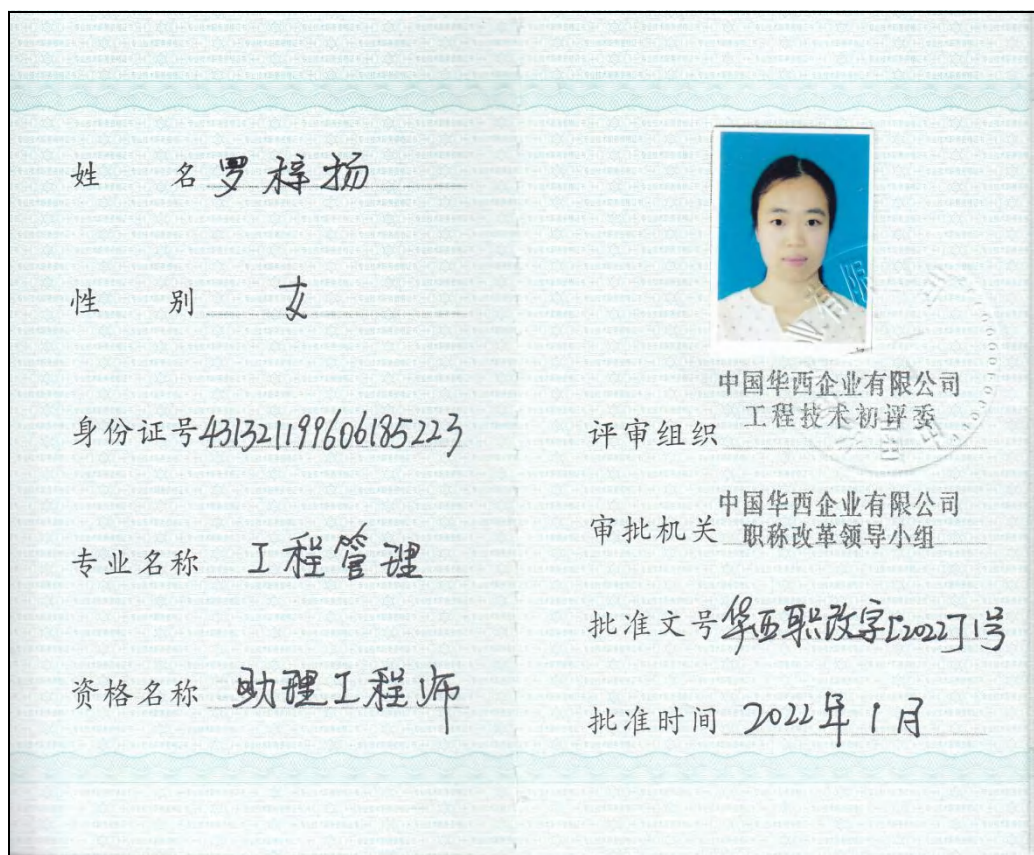 姓 名 罗梓扬
性 别 女
身份证号 431321199606185223
专业名称 工程管理
资格名称 助理工程师
中国华西企业有限公司
工程技术初评委
评审组织
中国华西企业有限公司
审批机关 职称改革领导小组
批准文号 华西职改字[2022]1号
批准时间 2022年1月